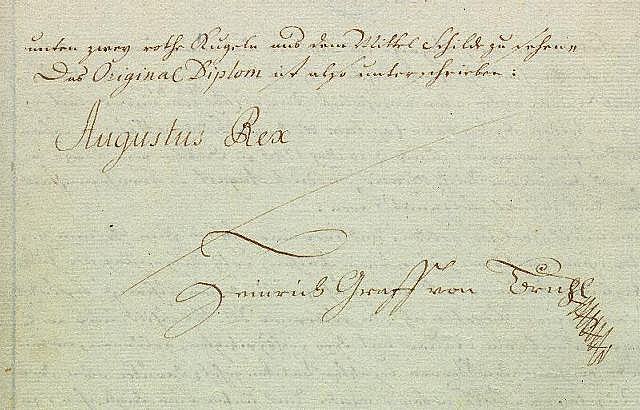 unten zwey rothe Kugeln aus dem Mittel Schilde zu sehen„
Das Original Diplom ist also unterschrieben:
Augustus Rex
Heinrich Graff von Brühl